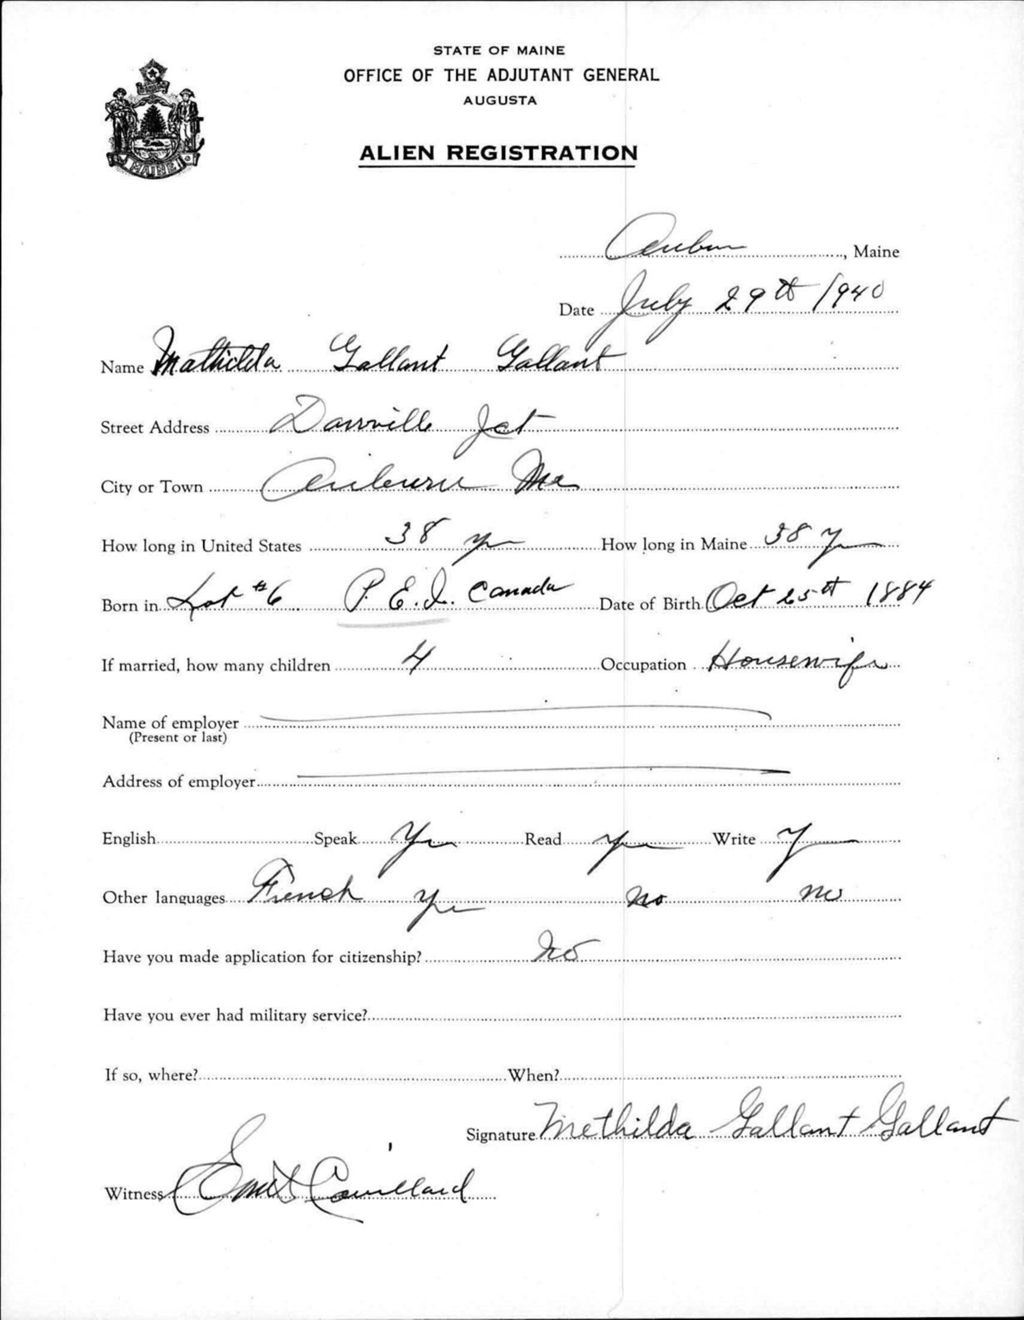 STATE OF MAINE
OFFICE OF THE ADJUTANT GENERAL
AUGUSTA
ALIEN REGISTRATION
MAINE
Auburn, Maine
Date July 29th 1940
Name Mathilda Gallant Gallant
Street Address Danville Jct
City or Town Auburn Me
How long in United States 38 yr How long in Maine 38 yr
Born in Lot #6 P.E.I. Canada Date of Birth Oct 25th 1884
If married, how many children 4 Occupation Housewife
Name of employer
(Present or last)
Address of employer
English Speak Yes Read Yes Write Y
Other languages French Yes No No
Have you made application for citizenship? No
Have you ever had military service?
If so, where? When?
Signature Methilda Gallant Gallant
Witness